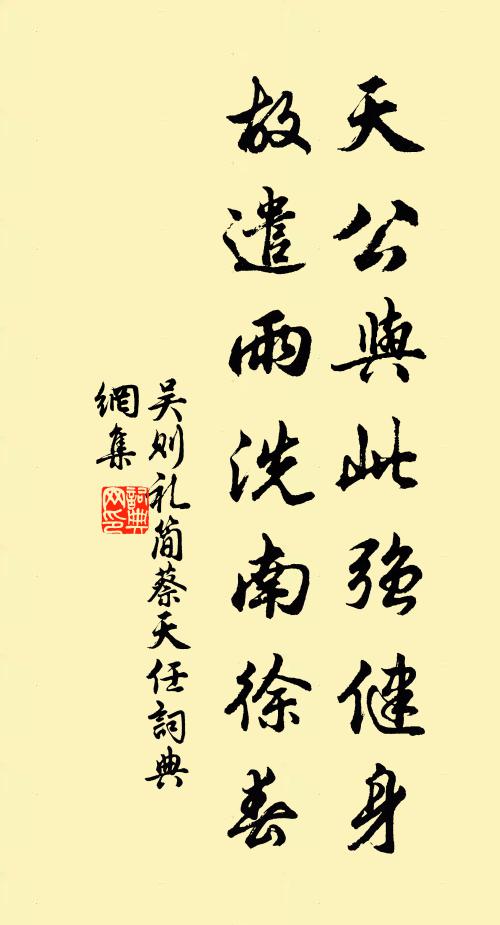 天公與此強健身
故遣雨洗南徐春
吴则礼简蔡天任詞典
網集
詞典
网印